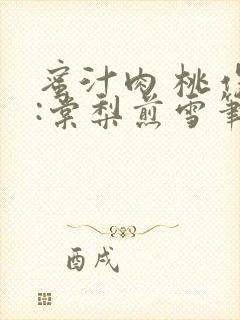 蜜汁肉桃作
:棠梨煎雪筆
酉戌